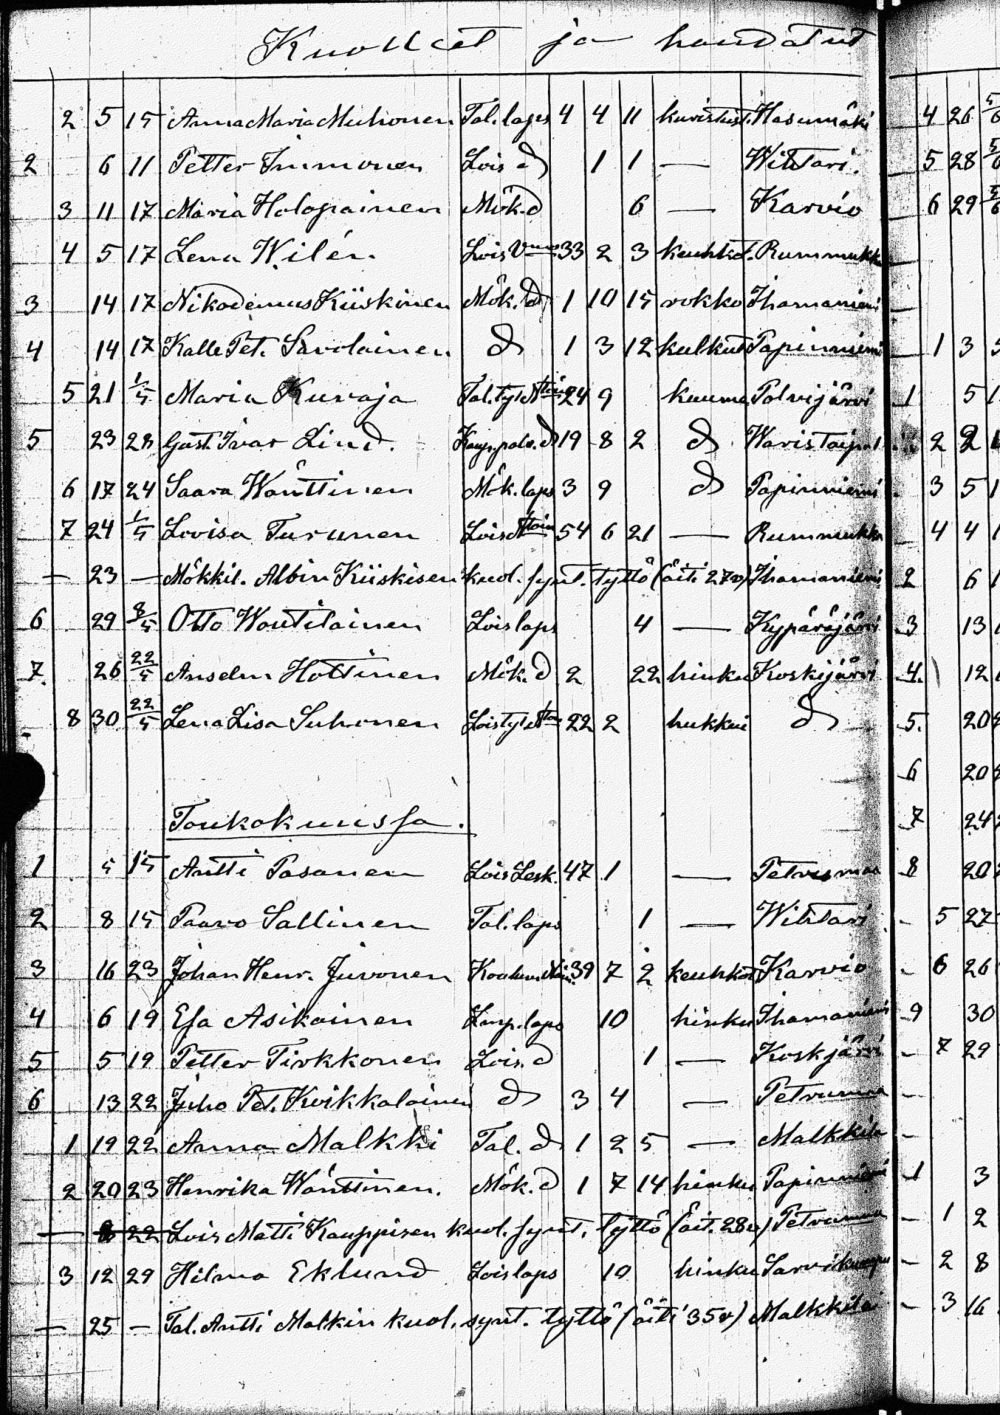 Kuolleet ja haudatut
2 5 15 Anna Maria Muhonen Tal. laps 4 4 11 kuristust. Hasumäki 4 26 5/6
2 6 11 Petter Immonen Lois d 1 1 — Wihtari. 5 28 5/6
3 11 17 Maria Holopainen Mök. d 6 — Karvio 6 29 5/6
4 5 17 Lena Wilén Lois 33 2 3 keuhkot. Rummukka
3 14 17 Nikodemus Kiiskinen Mök. d 1 10 15 rokko Ihamaniemi
4 14 17 Kalle Pet. Savolainen d 1 3 12 kulkut Papinniemi 1 3
5 21 1/5 Maria Kuvaja Tal. tyt 24 9 kuume Polvijärvi 1 5 1
5 23 28 Gust. Ivar Lind. Kaupp. palv. d 19 8 2 d Waristaipal 2 2
6 17 24 Saara Wänttinen Mök. laps 3 9 d Papinniemi 3 5 1
7 24 1/5 Lovisa Turunen Lois 54 6 21 — Rummukka 4 4 1
— 23 — Mökkil. Albin Kiiskisen kuol. synt. tyttö (äiti 27v) Ihamaniemi 2 6 1
6 29 8/5 Otto Woutilainen Lois laps 4 — Kypäräjärvi 3 13
7. 26 22/5 Anselm Hottinen Mök. d 2 22 hinku Koskijärvi 4. 12
8 30 22/5 Lena Lisa Suhonen Lois tyt 22 2 hukkui d 5. 20
6 20
Toukokuussa. 7 24
1 5 15 Antti Pasanen Lois Lesk. 47 1 — Petrumaa 8 20
2 8 15 Paavo Sallinen Tal. laps 1 — Wihtari 5 27
3 16 23 Johan Henr. Juvonen 39 7 2 keuhkot Karvio 6 26
4 6 19 Esa Asikainen laps 10 hinku Ihamaniemi 9 30
5 5 19 Petter Tirkkonen Lois. d 1 — Koskjärvi 7 29
6 13 22 Juho Pet. Kvikkalainen d 3 4 — Petrumaa
1 19 22 Anna Malkki Tal. d 1 2 5 — Malkkila
2 20 23 Henrika Wänttinen. Mök. d 1 7 14 hinku Papinniemi 1 3
— 8 22 Lois Matti Kauppisen kuol. synt. tyttö (Äit. 28v) Petrumaa 1 2
3 12 29 Hilma Eklund Lois laps 10 hinku Sarvikumpu 2 8
— 25 — Tal. Antti Malkin kuol. synt. tyttö (äiti 35v) Malkkila 3 16